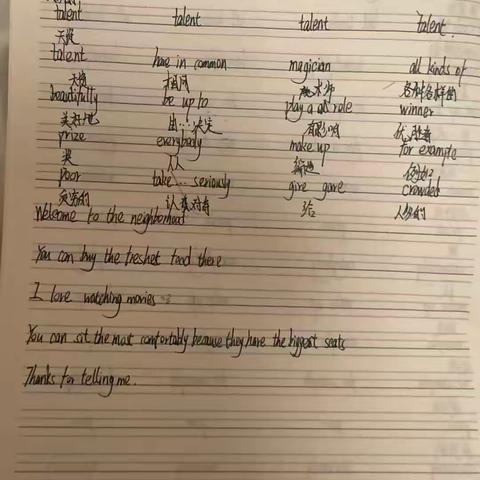 talent talent talent talent.
天赋
talent have in common magician all kinds of
天赋 相同 魔术师 各种各样的
beautifully be up to play a role winner
美好地 由…决定 有影响 获胜者
prize everybody make up for example
奖 人人 编造 例如
poor take … seriously give gave crowded
贫穷的 认真对待 给 人多的
Welcome to the neighborhood
You can buy the freshest food there
I love watching movies
You can sit the most comfortably because they have the biggest seats
Thanks for telling me.